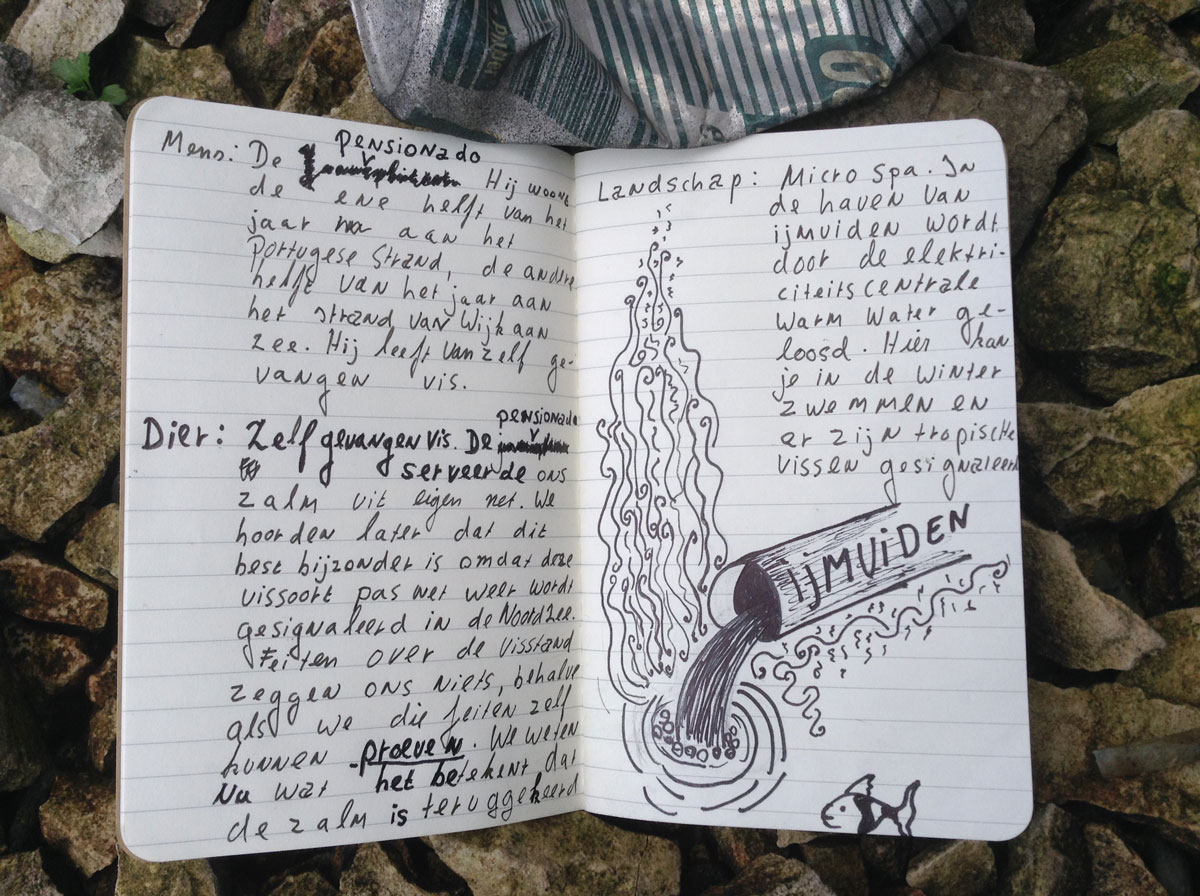 pensionado
Mens: De Hij woont
de ene helft van het
jaar aan het
Portugese strand, de andere
helft van het jaar aan
het strand van Wijk aan
zee. Hij leeft van zelf ge-
vangen vis.
pensionado
Dier: Zelf gevangen vis. De
serveerde ons
zalm uit eigen net. We
hoorden later dat dit
best bijzonder is omdat deze
vissoort pas net weer wordt
gesignaleerd in de Noordzee.
Feiten over de visstand
zeggen ons niets, behalve
als we die feiten zelf
kunnen proeven. We weten
Nu wat het betekent dat
de zalm is teruggekeerd
Landschap: Micro Spa. In
de haven van
ijmuiden wordt
door de elektri-
citeitscentrale
warm water ge-
loosd. Hier kan
je in de winter
zwemmen en
er zijn tropische
vissen gesignaleerd
IJMUIDEN